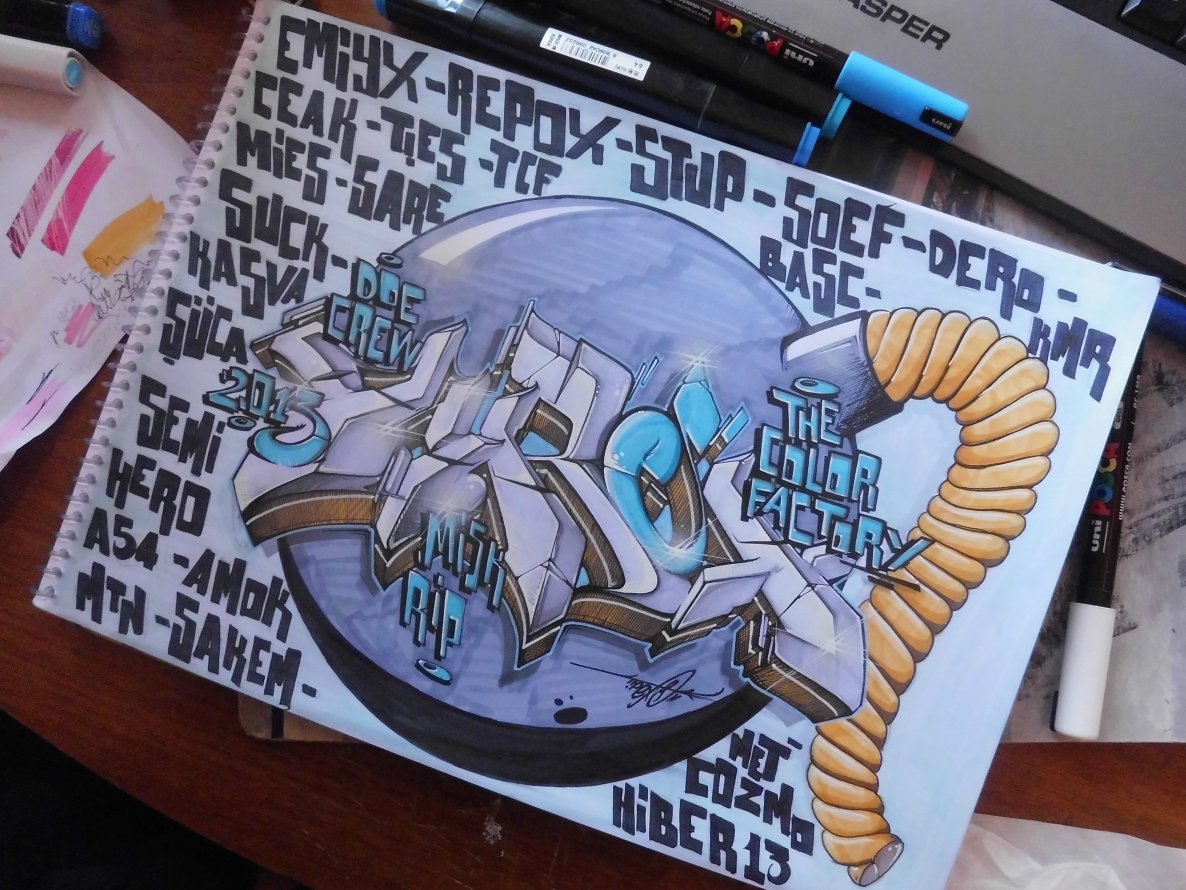 EMiYX-REPOX-STUP-SOEF-DERO-
CEAK-TiES-TCF
BASC-
KMR
MiES-SARE
SUCK-
KASVA
ŞÜCA
DOE
CREW
2013
THE
COLOR
FACTORY
SEMi
HERO
A54-AMOK
MTN-SAKEM-
RiP
MET-
COZMO
HiBER13
CASPER
uni POSCA
uni
uni POSCA